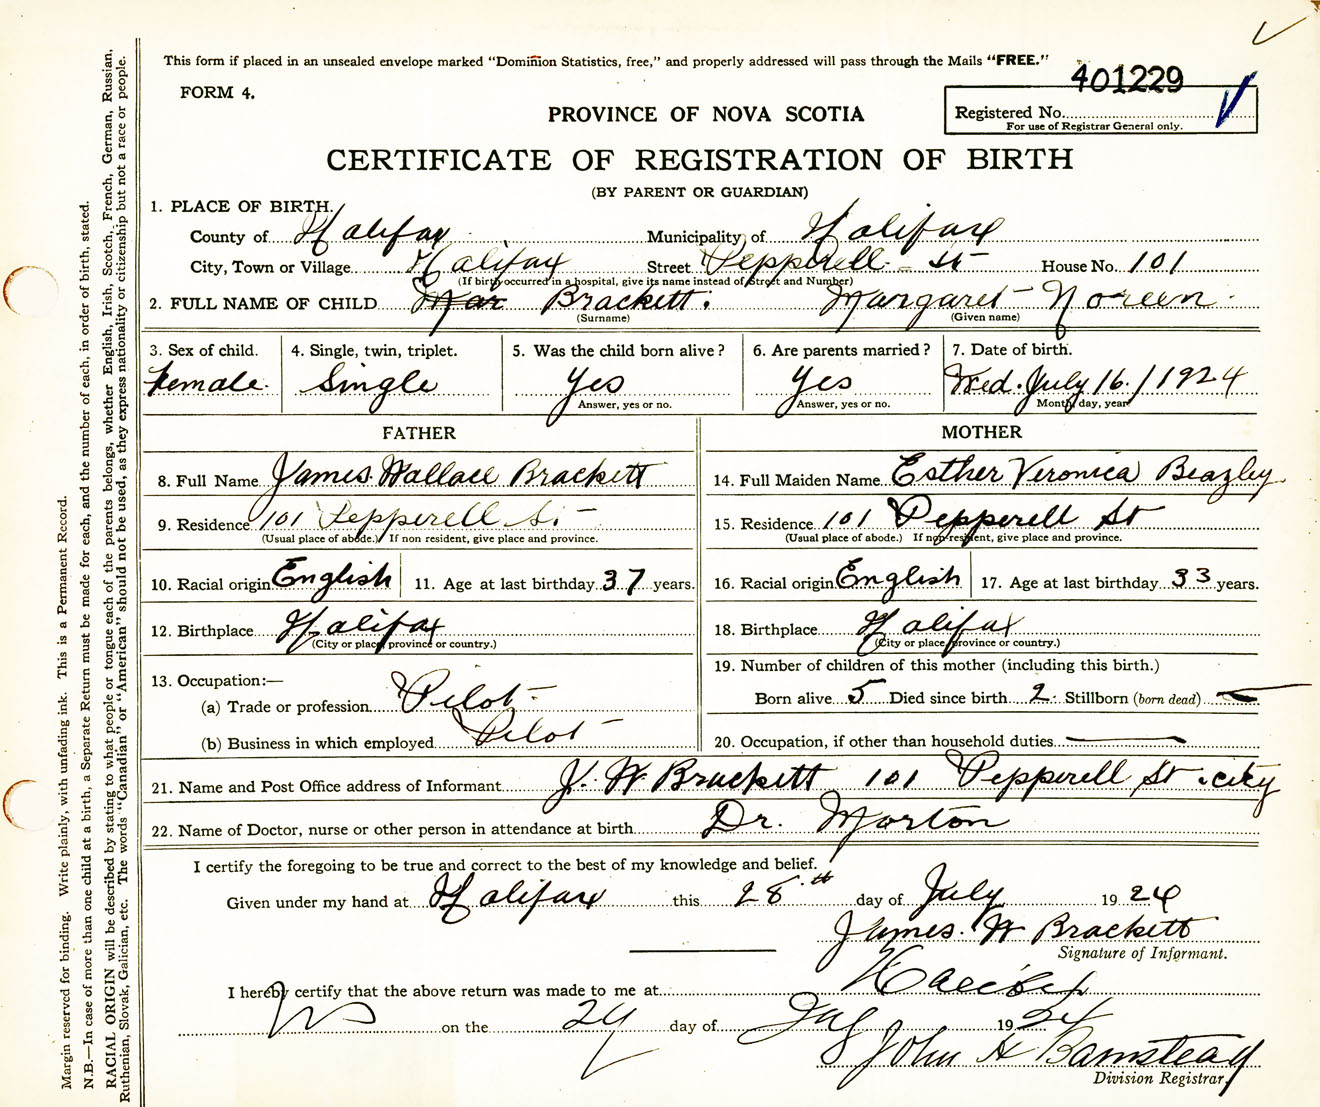 This form if placed in an unsealed envelope marked "Dominion Statistics, free," and properly addressed will pass through the Mails "FREE."
401229
FORM 4.
Registered No.
For use of Registrar General only.
PROVINCE OF NOVA SCOTIA
CERTIFICATE OF REGISTRATION OF BIRTH
(BY PARENT OR GUARDIAN)
1. PLACE OF BIRTH.
County of Halifax Municipality of Halifax
City, Town or Village Halifax Street Pepperell St House No. 101
(If birth occurred in a hospital, give its name instead of Street and Number)
2. FULL NAME OF CHILD Mar Brackett. Margaret Noreen
(Surname) (Given name)
3. Sex of child. 4. Single, twin, triplet. 5. Was the child born alive? 6. Are parents married? 7. Date of birth.
Female. Single Yes Yes Wed. July 16./1924
Answer, yes or no. Answer, yes or no. Month, day, year
FATHER MOTHER
8. Full Name James Wallace Brackett 14. Full Maiden Name Esther Veronica Beazley
9. Residence 101 Pepperell St. 15. Residence 101 Pepperell St
(Usual place of abode.) If non resident, give place and province. (Usual place of abode.) If non-resident, give place and province.
10. Racial origin English 11. Age at last birthday 37 years. 16. Racial origin English 17. Age at last birthday 33 years.
12. Birthplace Halifax 18. Birthplace Halifax
(City or place, province or country.) (City or place, province or country.)
13. Occupation:— 19. Number of children of this mother (including this birth.)
(a) Trade or profession Pilot Born alive 5 Died since birth 2 Stillborn (born dead)
(b) Business in which employed Pilot 20. Occupation, if other than household duties
21. Name and Post Office address of Informant J. W. Brackett 101 Pepperell St. city
22. Name of Doctor, nurse or other person in attendance at birth Dr. Morton
I certify the foregoing to be true and correct to the best of my knowledge and belief.
Given under my hand at Halifax this 28th day of July 1924
James. W Brackett
Signature of Informant.
I hereby certify that the above return was made to me at Halifax
NS on the 29 day of July 1924
John H Barnstead
Division Registrar.
Margin reserved for binding. Write plainly, with unfading ink. This is a Permanent Record.
N.B.—In case of more than one child at a birth, a Separate Return must be made for each, and the number of each, in order of birth, stated.
RACIAL ORIGIN will be described by stating to what people or tongue each of the parents belongs, whether English, Irish, Scotch, French, German, Russian,
Ruthenian, Slovak, Galician, etc. The words "Canadian" or "American" should not be used, as they express nationality or citizenship but not a race or people.